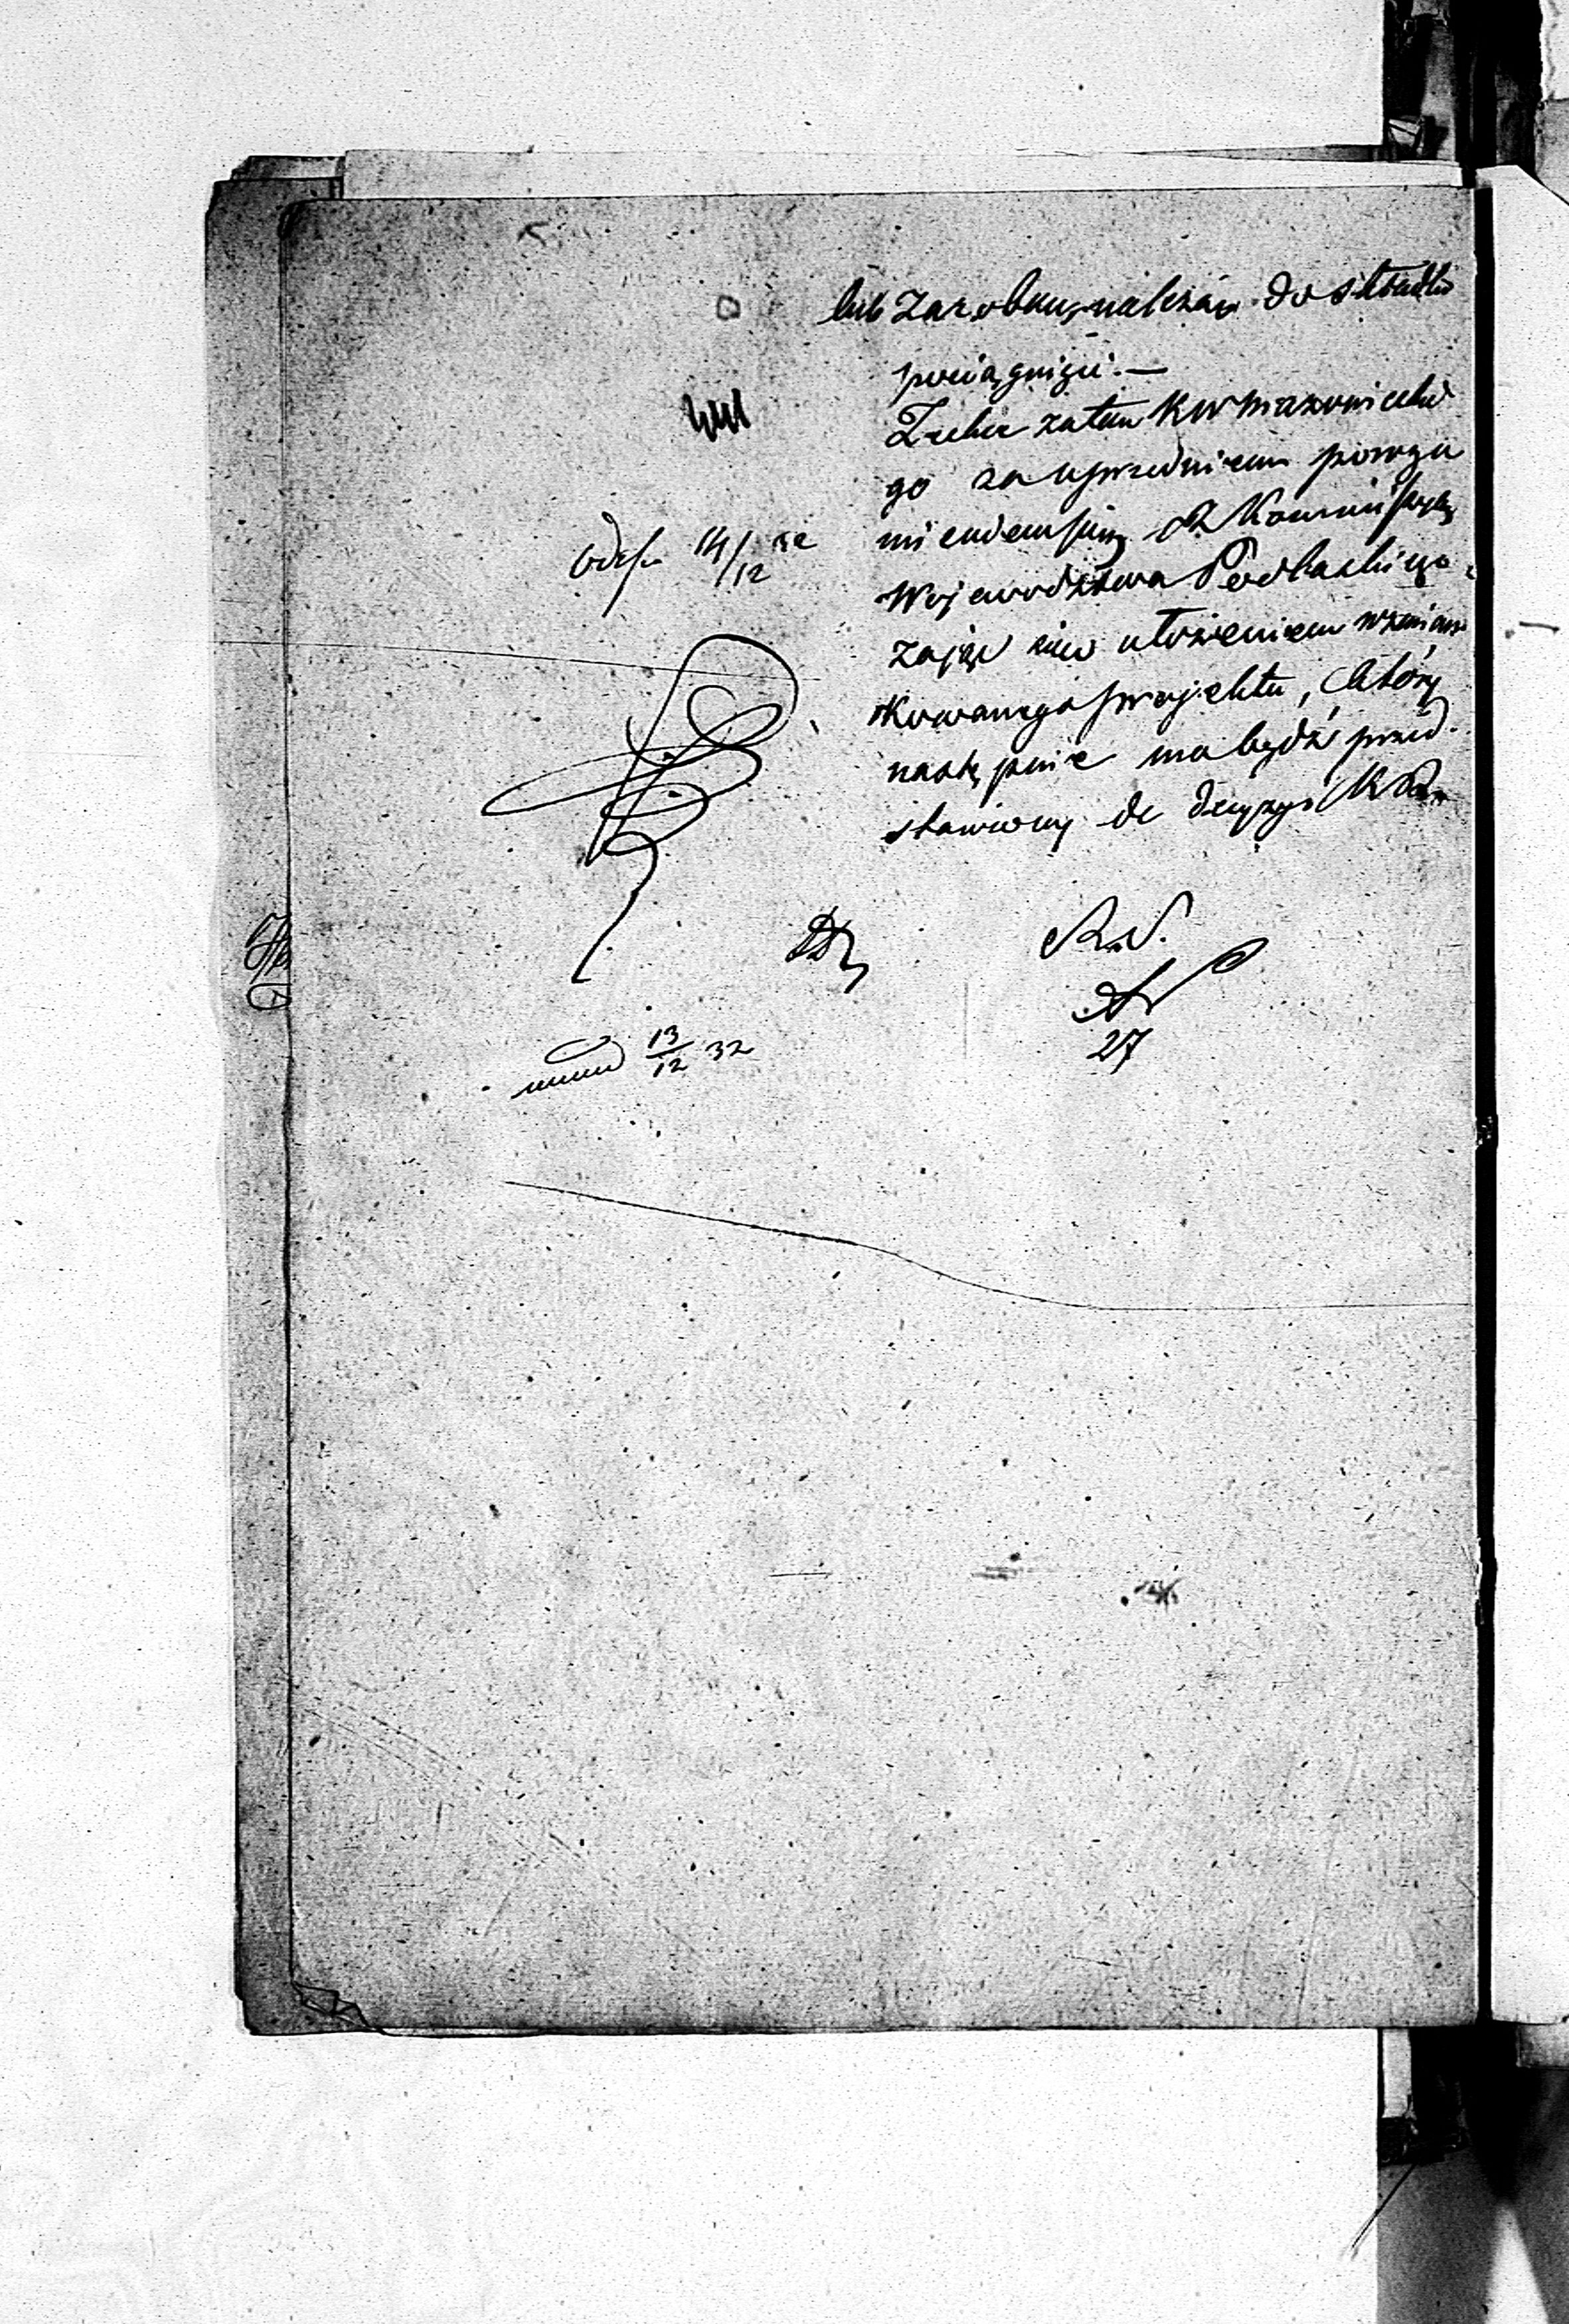 lub zarobku, należą do składki
pociągnięci. —
Zechce zatem KW Mazowieckie
go za uprzedniem porozu
mieniem się z Kommissyą
Województwa Podlaskiego
zająć się ułożeniem wzmian
kowanego projektu, który
następnie ma bydź przed
stawiony do decyzyi KR
Odesł. 14/12 32
13/12 32
27